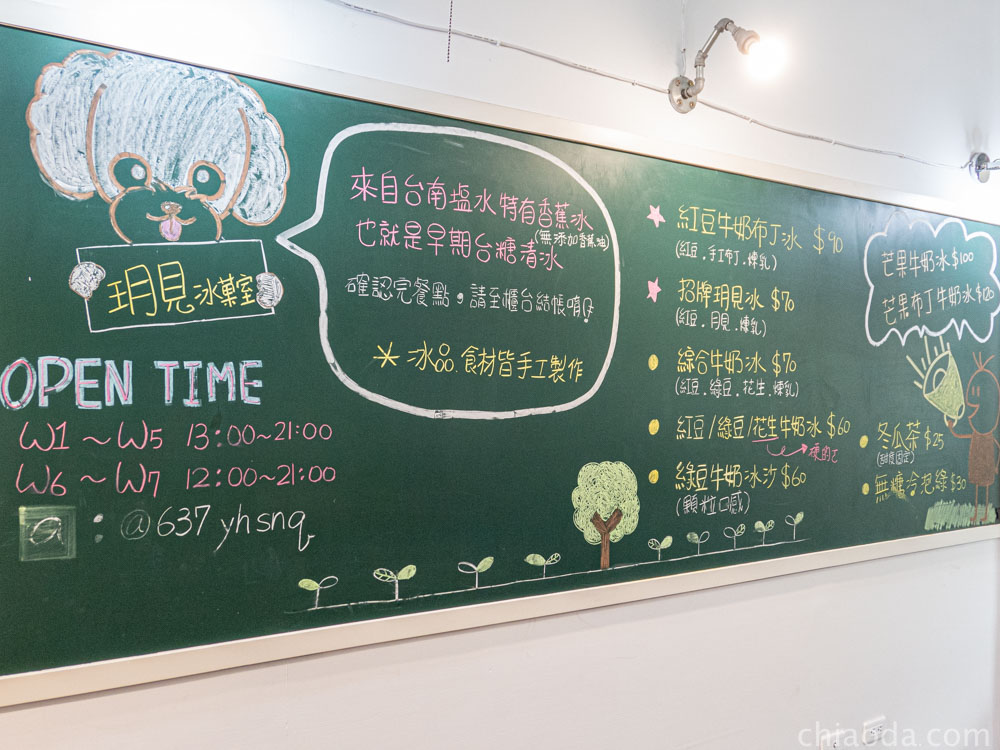 玥見冰菓室
OPEN TIME
W1～W5 13:00～21:00
W6～W7 12:00～21:00
: @637yhsnq
來自台南塩水特有香蕉冰
(無添加香蕉油)
也就是早期台糖清冰
確認完餐點。請至櫃台結帳唷!
＊冰品.食材皆手工製作
紅豆牛奶布丁冰 $90
(紅豆.手工布丁.煉乳)
招牌玥見冰 $70
(紅豆.月見.煉乳)
綜合牛奶冰 $70
(紅豆.綠豆.花生.煉乳)
紅豆/綠豆/花生牛奶冰 $60
綠豆牛奶冰沙 $60
(顆粒口感)
芒果牛奶冰 $100
芒果布丁牛奶冰 $120
冬瓜茶 $25
(甜度固定)
無糖冷泡綠 $30
chiabda.com